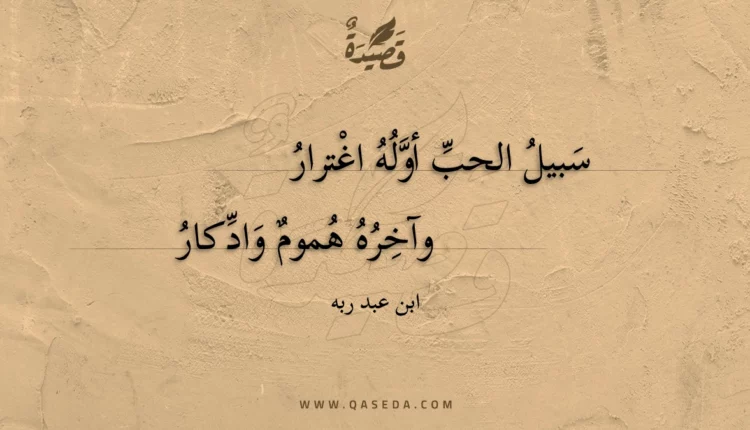 قَصِيدَةٌ
سَبيلُ الحبِّ أوَّلُهُ اغْترارُ
وآخِرُهُ هُمومٌ وَادِّكارُ
ابن عبد ربه
WWW.QASEDA.COM